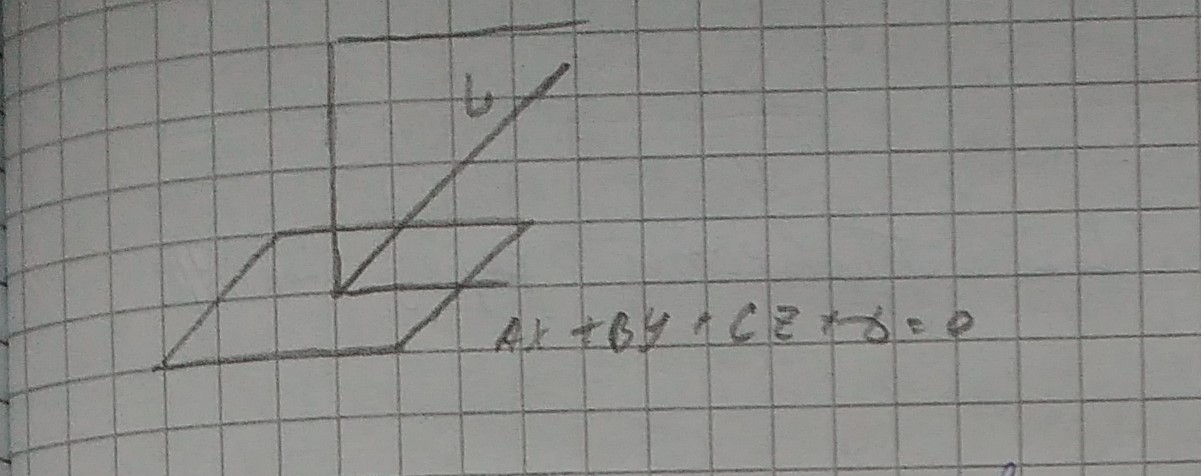 L
Ax + By + Cz + D = 0